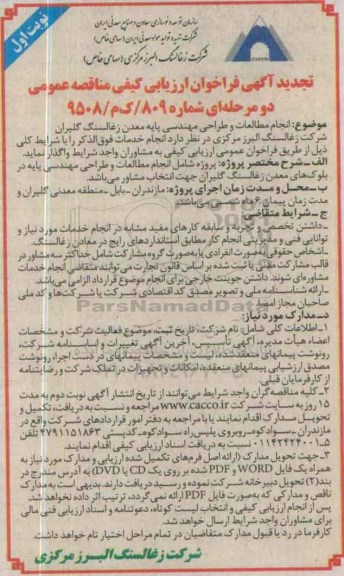 نوبت اول
سازمان توسعه و نوسازی معادن و صنایع معدنی ایران
شرکت تهیه و تولید مواد معدنی ایران (سهامی خاص)
شرکت زغالسنگ البرز مرکزی (سهامی خاص)
تجدید آگهی فراخوان ارزیابی کیفی مناقصه عمومی
دو مرحله‌ای شماره ۸۰۹/ک‌م/۹۵۰۸
موضوع: انجام مطالعات و طراحی مهندسی پایه معدن زغالسنگ گلیران
شرکت زغالسنگ البرز مرکزی در نظر دارد انجام خدمات فوق‌الذکر را با شرایط کلی
ذیل از طریق فراخوان عمومی ارزیابی کیفی به مشاوران واجد شرایط واگذار نماید.
الف ـ شرح مختصر پروژه: پروژه شامل انجام مطالعات و طراحی مهندسی پایه در
بلوک‌های معدن زغالسنگ گلیران جهت انتخاب مشاور می‌باشد.
ب ـ محل و مدت زمان اجرای پروژه: مازندران ـ بابل ـ منطقه معدنی گلیران و
مدت زمان پیمان ۶ ماه شمسی می‌باشد.
ج ـ شرایط متقاضی:
ـ داشتن تخصص و تجربه و سابقه کارهای مفید مشابه در انجام خدمات مورد نیاز و
توانایی فنی و مدیریتی انجام کار مطابق استانداردهای رایج در معادن زغالسنگ.
ـ اشخاص حقوقی به‌صورت انفرادی یا به‌صورت گروه مشارکت شامل حداکثر سه مشاور در
قالب مشارکت مدنی یا ثبت شده بر اساس قانون تجارت می‌توانند متقاضی انجام خدمات
مشاوره‌ای شوند. داشتن جوینت خارجی برای انجام موضوع قرارداد الزامی می‌باشد.
ـ ارائه شناسنامه ملی و تصویر مصدق کد اقتصادی شرکت یا شرکت‌ها و کد ملی
صاحبان مجاز امضا.
ParsNamadData
د ـ مدارک مورد نیاز:
۱ـ اطلاعات کلی شامل: نام شرکت، تاریخ ثبت، موضوع فعالیت شرکت و مشخصات
اعضاء هیأت مدیره، آگهی تأسیس، آخرین آگهی تغییرات و اساسنامه شرکت،
رونوشت پیمانهای منعقدشده، لیست و مشخصات پیمانهای در دست اجرا، رونوشت
مصدق ارزشیابی پیمانهای منعقده، امکانات و تجهیزات در تملک شرکت و رضایتنامه
از کارفرمایان قبلی.
۲ـ کلیه مناقصه‌گران واجد شرایط می‌توانند از تاریخ انتشار آگهی نوبت دوم به مدت
۱۵ روز به سایت شرکت www.cacco.ir مراجعه و نسبت به دریافت، تکمیل و
تحویل مدارک اقدام نمایند یا با مراجعه به دفتر امور قراردادهای شرکت واقع در
مازندران ـ سوادکوه ـ روبروی پلیس راه سوادکوه، کدپستی ۴۷۹۱۱۵۱۸۶۳ تلفن
۵ـ۰۱۱۴۲۴۲۴۰۰۱ نسبت به دریافت اسناد ارزیابی کیفی اقدام نمایند.
۳ـ جهت تحویل مدارک (ارائه اصل فرم‌های تکمیل شده ارزیابی و مدارک مورد نیاز به
همراه یک فایل WORD و PDF شده بر روی یک CD یا DVD) به آدرس مندرج در
بند (۲) تحویل دبیرخانه شرکت نموده و رسید دریافت دارند. بدیهی است به مدارک
ناقص و مدارکی که به‌صورت فایل PDF ارائه نمی‌گردد، ترتیب اثر داده نخواهد شد.
پس از انجام ارزیابی کیفی و انتخاب لیست کوتاه، دعوتنامه و اسناد ارزیابی فنی مالی
برای مشاوران واجد شرایط ارسال خواهد شد.
کارفرما در رد یا قبول مدارک متقاضیان در تمام مراحل اختیار تام خواهد داشت.
شرکت زغالسنگ البرز مرکزی